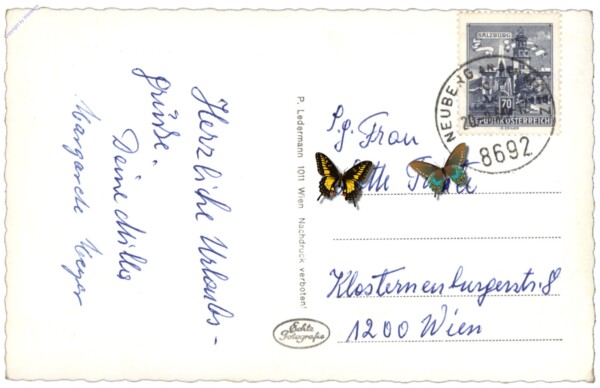 Herzliche Urlaubs-
grüße.
Deine
Margarete
P. Ledermann 1011 Wien Nachdruck verboten!
Echte
Fotografie
SALZBURG
70
REPUBLIK ÖSTERREICH
NEUBERG AN DER
8692
Frau
Klosterneuburgerstr. 8
1200 Wien